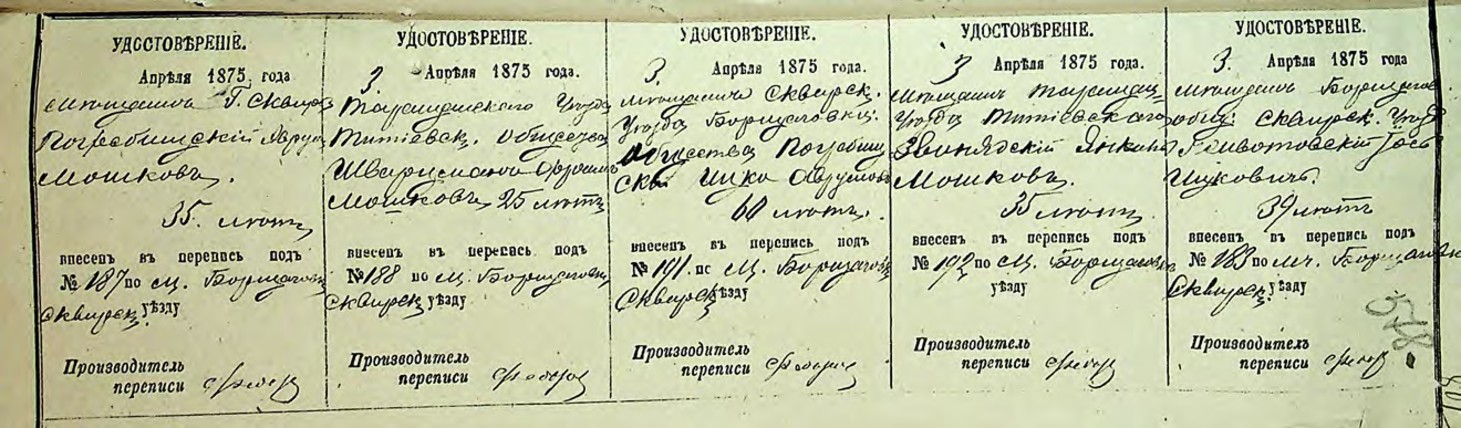 УДОСТОВѢРЕНІЕ.
Апрѣля 1875 года
мѣщанинъ Г. Сквир
Погребищскій Авру
Мошковъ.
35 лѣтъ
внесенъ въ перепись подъ
№ 187 по м. Борщагов
Сквирск. уѣзду
Производитель
переписи
УДОСТОВѢРЕНІЕ.
3 Апрѣля 1875 года.
Таращанскаго Уѣзда
Титіевск. Общества
Мошковъ 25 лѣтъ
внесенъ въ перепись подъ
№ 188 по м. Борщаговк
Сквирск уѣзду
Производитель
переписи
УДОСТОВѢРЕНІЕ.
3. Апрѣля 1875 года.
мѣщанинъ Сквирск.
Уѣзда Борщаговк.
Общества Погребищ
скій Ицко Аврумов
60 лѣтъ.
внесенъ въ перепись подъ
№ 191. по м. Борщагов
Сквирск уѣзду
Производитель
переписи
УДОСТОВѢРЕНІЕ.
3 Апрѣля 1875 года.
мѣщанинъ Таращан
Уѣзда Титіевскаго
Янкель
Мошковъ.
35 лѣтъ
внесенъ въ перепись подъ
№ 192 по м. Борщагов
уѣзду
Производитель
переписи
УДОСТОВѢРЕНІЕ.
3. Апрѣля 1875 года
мѣщанинъ Борщагов
общ. Сквирск. Уѣзд
Животовскій Іось
Ицковичъ.
39 лѣтъ
внесенъ въ перепись подъ
№ 183 по м. Борщаговк
Сквирск. уѣзду
Производитель
переписи
578